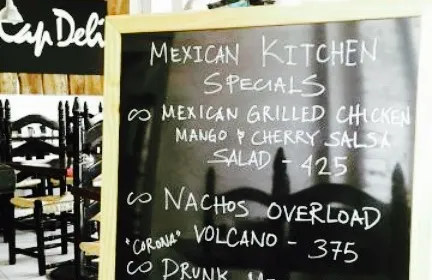 Cap Deli
MEXICAN KITCHEN
SPECIALS
∞ MEXICAN GRILLED CHICKEN
MANGO & CHERRY SALSA
SALAD - 425
∞ NACHOS OVERLOAD
"CORONA" VOLCANO - 375
∞ DRUNK